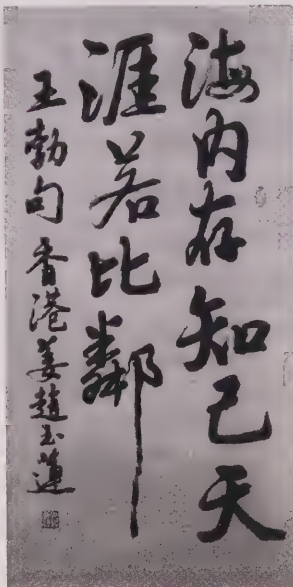 海内存知己天
涯若比鄰
王勃句 香港姜趙玉蓮